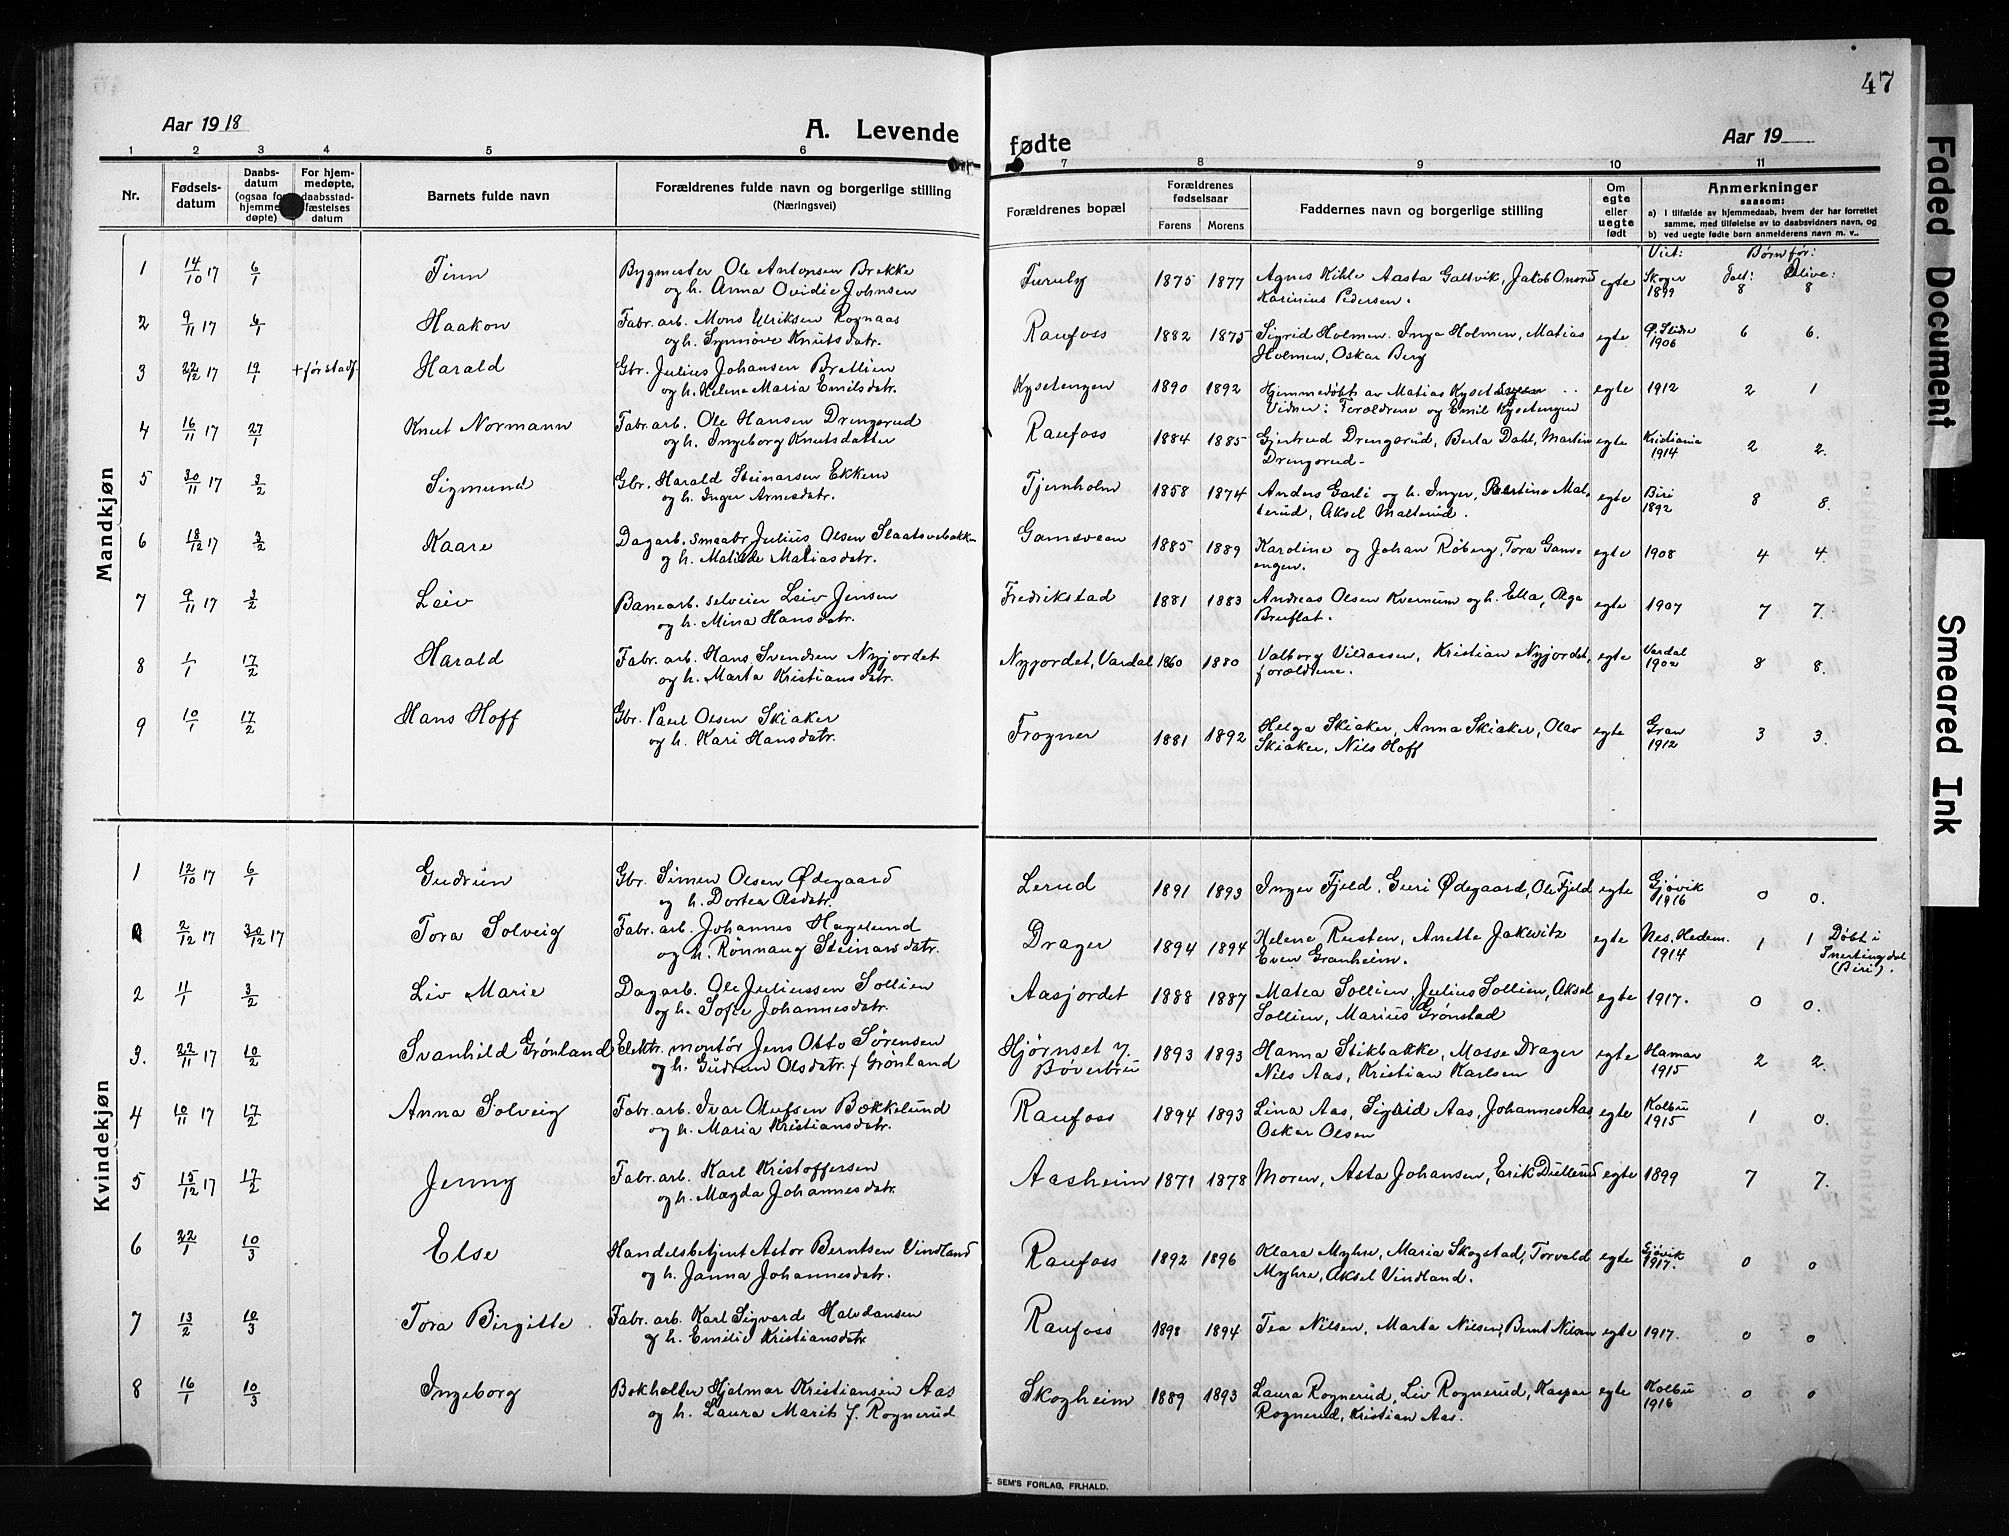 47
Aar 1918
A. Levende
fødte
Aar 19
1 2 3 4 5 6 7 8 9 10 11
Nr.
Fødsels-
datum
Daabs-
datum
(ogsaa for
hjemme-
døpte)
For hjem-
medøpte,
daabsstad-
fæstelses
datum
Barnets fulde navn
Forældrenes fulde navn og borgerlige stilling
(Næringsvei)
Forældrenes bopæl
Forældrenes
fødselsaar
Farens Morens
Faddernes navn og borgerlige stilling
Om
egte
eller
uegte
født
Anmerkninger
saasom:
a) I tilfælde av hjemmedaab, hvem der har forrettet
samme, med tilføielse av to daabsvidners navn, og
b) ved uegte fødte barn anmelderens navn m. v..
Viet: Børn før:
Ialt: Olive:
Mandkjøn
1 14/10 17 6/1 Finn Bygmester Ole Antonsen Brekke Furuby 1875 1877 Agnes Kihle Aasta Galtvik, Jakob Onsrud egte Skoger 8 8
og h. Anna Ovidie Johnsen Karinius Pedersen. 1899
2 9/11 17 6/1 Haakon Fabr. arb. Mons Ulriksen Rognaas Raufoss 1882 1875 Sigrid Holmen. Inga Holmen, Matias egte Ø. Slidre 6 6.
og h. Synnöve Knutsdatr. Holmen, Oskar Berg 1906
3 22/12 17 19/1 + før stadf. Harald Gbr. Julius Johansen Bratlien Kysetengen 1890 1892 Hjemmedøbt av Matias Kysetengen egte 1912 2 1
og h. Helene Maria Emilsdatr. Vidner: Forældrene og Emil Kysetengen
4 16/11 17 27/1 Knut Normann Fabr. arb. Ole Hansen Drengsrud Raufoss 1884 1885 Gjertrud Drengsrud, Berta Dahl, Martin egte Kristiania 2 2.
og h. Ingeborg Knutsdatter Drengsrud- 1914
5 30/11 17 3/2 Sigmund Gbr. Harald Steinarsen Ekkern Tjernholm 1858 1874 Anders Garli og h. Inger, Bertine Mal- egte Biri 8 8.
og h. Inger Arnesdatr. terud, Aksel Malterud. 1892
6 18/12 17 3/2 Kaare Dagarb. smaabr. Julius Olsen Slaatsvebakken Gamsveen 1885 1889 Karoline og Johan Røberg, Tora Gams- egte 1908 4 4.
og h. Matilde Matiasdatr. engen.
7 9/11 17 3/2 Leiv Banearb. selveier Leiv Jensen Fredrikstad 1881 1883 Andreas Olsen Kvernum og h. Ella, Olga egte 1907 7 7.
og h. Mina Hansdatr. Bruflat.
8 1/1 17/2 Harald Fabr. arb. Hans Svendsen Nyjordet Nyjordet, Vardal 1860 1880 Valborg Vildaasen, Kristian Nyjordet, egte Vardal 8 8.
og h. Marta Kristiansdatr. forældrene. 1902
9 10/1 17/2 Hans Hoff Gbr. Paul Olsen Skiaker Frogner 1881 1892 Helga Skiaker, Anna Skiaker, Olav egte Gran 3 3.
og h. Kari Hansdatr. Skiaker, Nils Hoff 1912
Kvindekjøn
1 12/10 17 6/1 Gudrun Gbr. Simen Olsen Ødegaard Lerud 1891 1893 Inger Fjeld, Guri Ødegaard, Ole Fjeld egte Gjøvik 0 0.
og h. Dortea Olsdatr. 1916
2/12 17 30/12 17 Tora Solveig Fabr. arb. Johannes Hagelund Drager 1894 1894 Helene Rusten, Anette Jakwitz egte Nes. Hedem. 1 1 Døbt i
og h. Rönnaug Steinarsdatr. Even Granheim. 1914 Snertingdal
(Biri).
2 11/1 3/2 Liv Marie Dagarb. Ole Juliussen Sollien Aasjordet 1888 1887 Matea Sollien, Julius Sollien, Aksel egte 1917. 0 0.
og h. Sofie Johannesdatr. Sollien, Marius Grønstad
3. 22/11 17 10/2 Svanhild Grönland Elektr. montör Jens Otto Sørensen Hjørnset 1893 1893 Hanna Stikbakke, Mosse Drager egte Hamar 2 2.
og h. Gudrun Olsdatr. f Grönland Bøverbru Nils Aas, Kristian Karlsen 1915
4 10/11 17 17/2 Anna Solveig Fabr. arb. Ivar Olufsen Bækkelund Raufoss 1894 1893 Lina Aas, Sigrid Aas, Johannes Aas egte Kolbu 1 0.
og h. Maria Kristiansdatr. Oskar Olsen 1915
5 15/12 17 17/2 Jenny Fabr. arb. Karl Kristoffersen Aasheim 1871 1878 Moren, Asta Johansen, Erik Dullerud egte 1899 7 7.
og h. Magda Johannesdatr.
6 22/1 10/3 Else Handelsbetjent Astor Berntsen Vindland Raufoss 1892 1896 Klara Myhre, Maria Skogstad, Torvald egte Gjøvik 0 0
og h. Janna Johannesdatr. Myhre, Aksel Vindland. 1917.
7 13/2 10/3 Tora Birgitte Fabr. arb. Karl Sigvard Halvdansen Raufoss 1898 1894 Tea Nilsen, Marta Nilsen, Bernt Nilsen egte 1917. 0 0
og h. Emilie Kristiansdatr
8 16/1 10/3 Ingeborg Bokholler Hjalmar Kristiansen Aas Skogheim 1889 1893 Laura Rognerud, Liv Rognerud, Kaspar egte Kolbu 0 0
og h. Laura Marit f. Rognerud Rognerud, Kristian Aas. 1916
E. SEM'S FORLAG, FR.HALD.
Faded Document
Smeared Ink